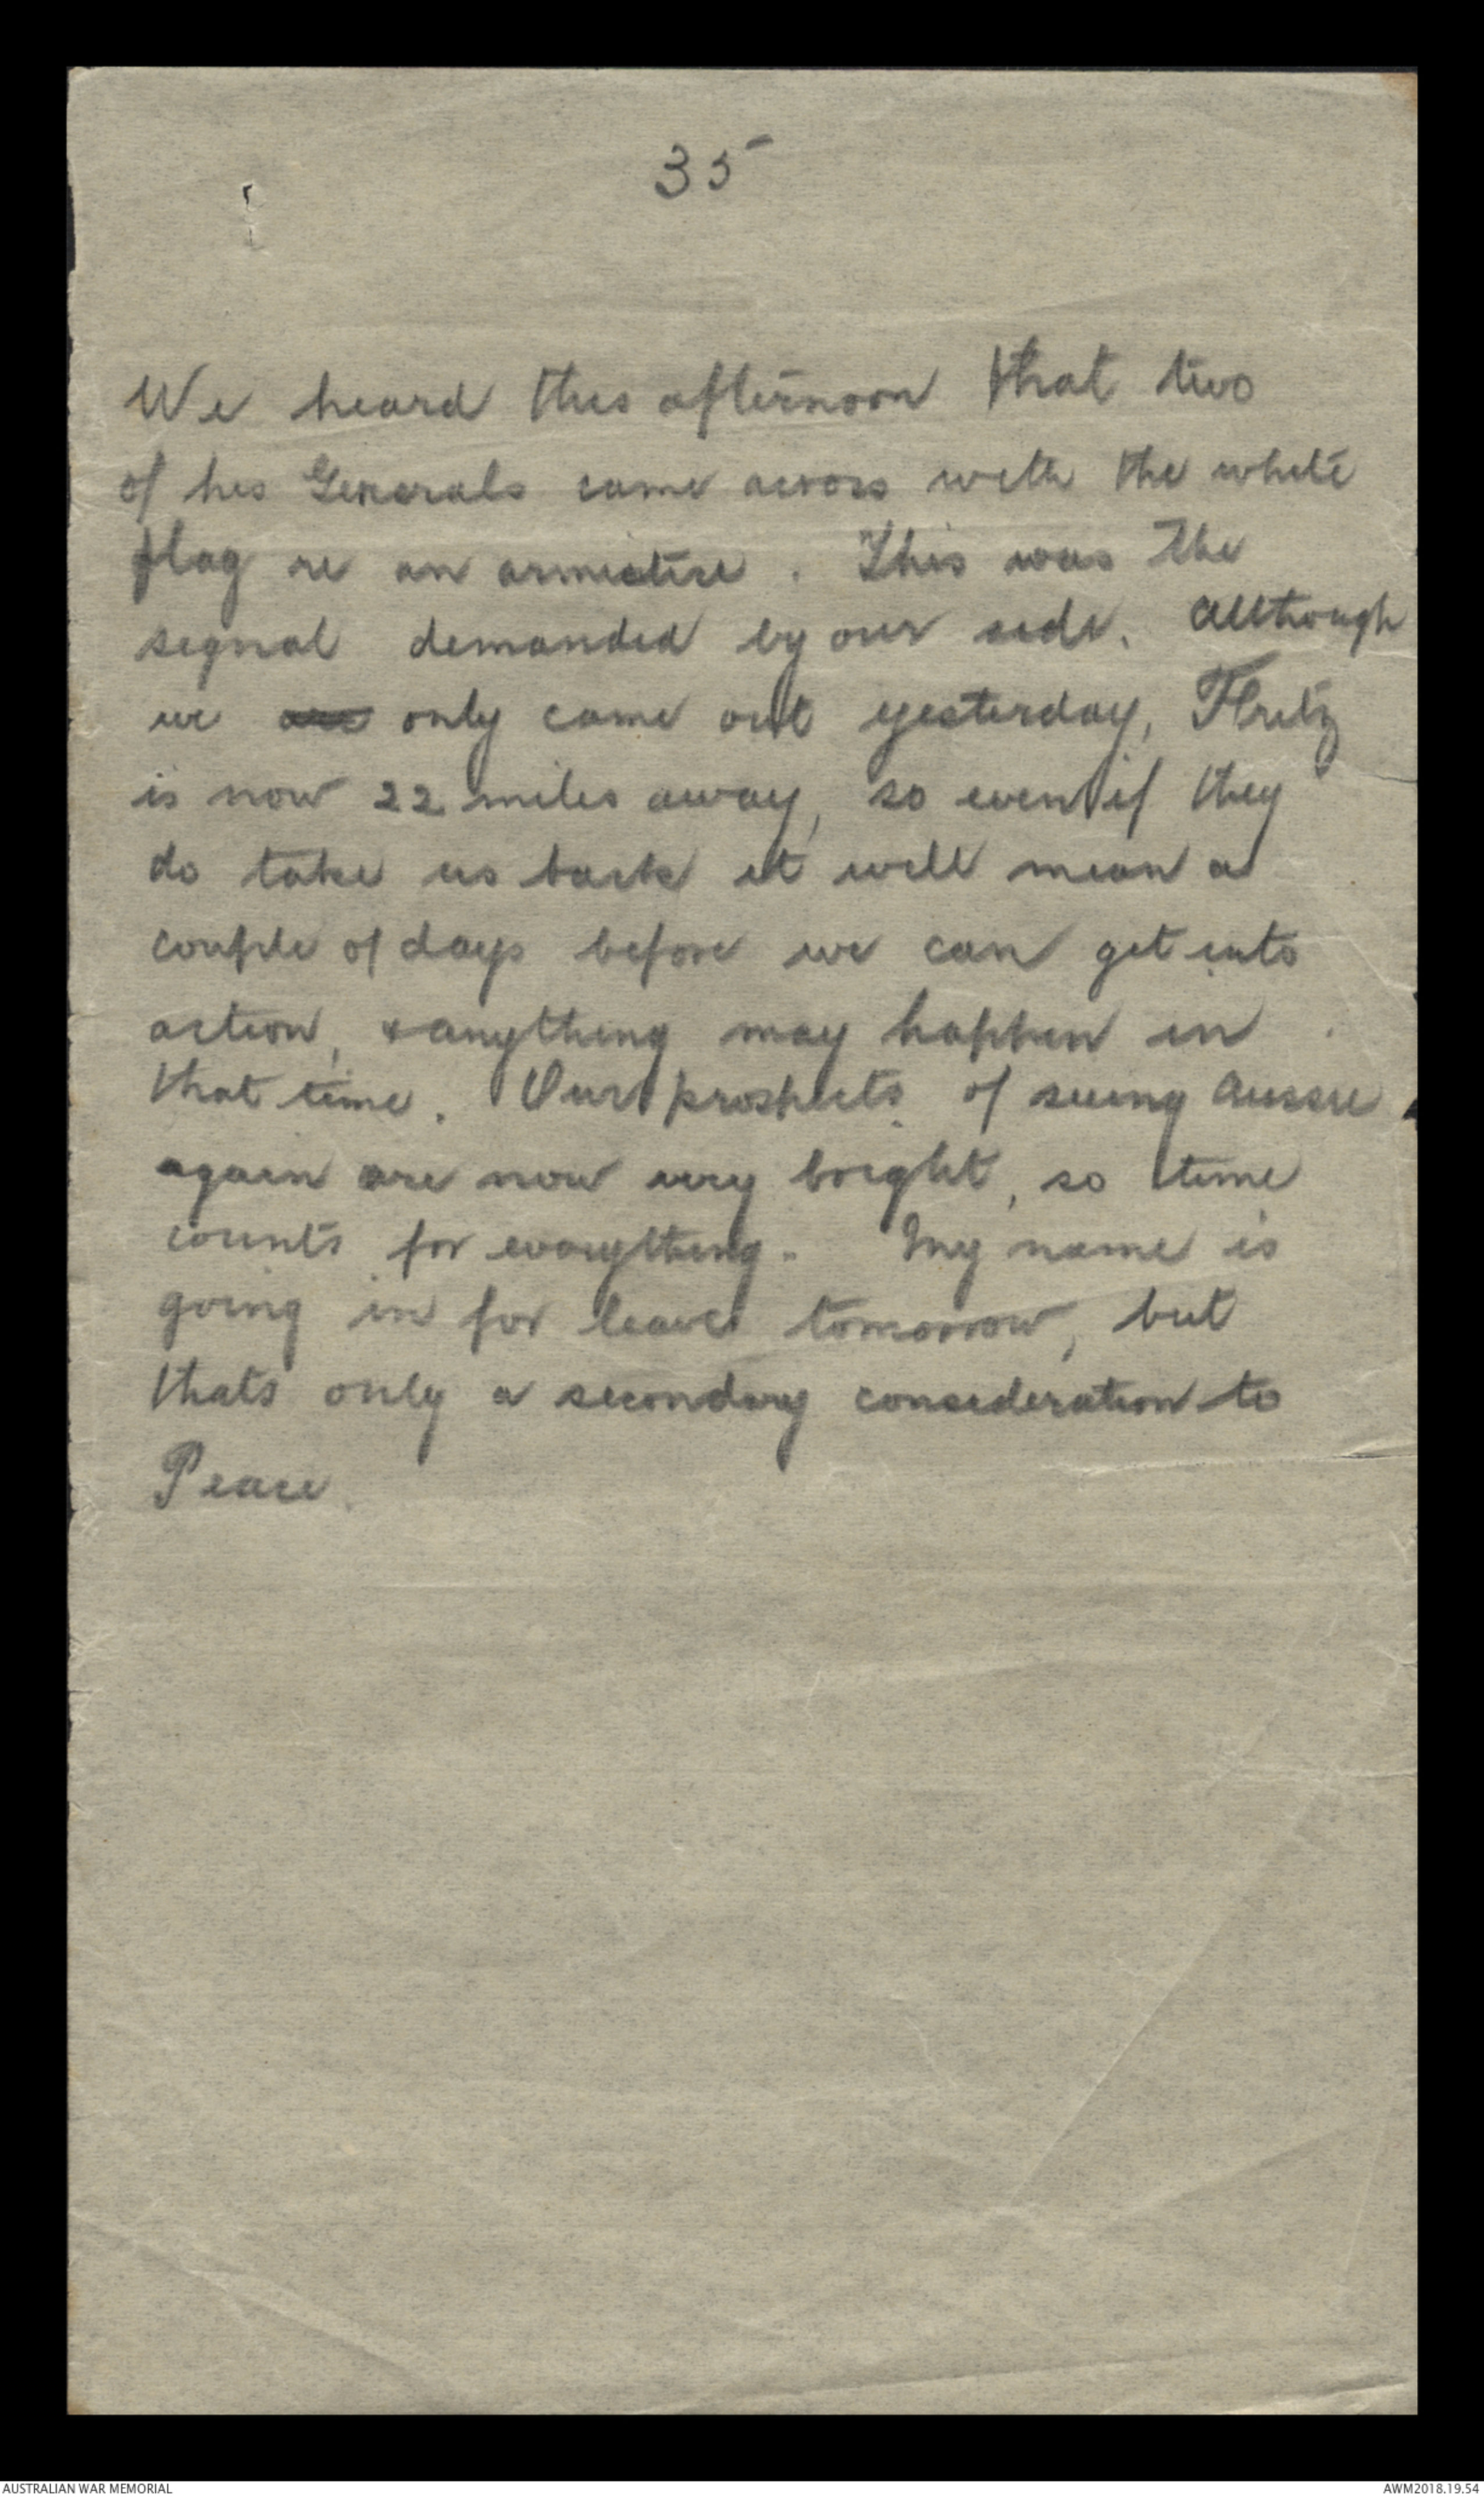 35
We heard this afternoon that two
of his Generals came across with the white
flag re an armistice. This was the
signal demanded by our side. Although
we are only came out yesterday, Fritz
is now 22 miles away, so even if they
do take us back it will mean a
couple of days before we can get into
action, & anything may happen in
that time. Our prospects of seeing Aussie
again are now very bright, so time
counts for everything. My name is
going in for leave tomorrow, but
thats only a secondary consideration to
Peace.
AUSTRALIAN WAR MEMORIAL
AWM2018.19.54